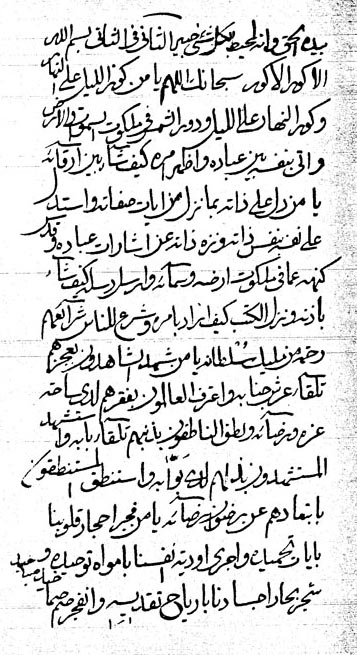 بيده الحق وانه لمحيط بكل شئ خبير الثاني في الثاني بسم الله
الاكور الاكور سبحانك اللهم يا من كور الليل على النهار
وكور النهار على الليل ودور الشمس في ملكوت السموات والارض
واتى بنفسه بين عباده واظهر امره كيف شاء بين ارقائه
يا من دل على ذاته بما نزل من ايات صفاته واستدل
على نفسه بنفس ذاته ونزه ذاته عن اشارات عباده وقدس
كنهه عما في ملكوت ارضه وسمائه وارسل رسله كيف شاء
باذنه ونزل الكتب كيف اراد بامره وشرع للناس شرايعهم
رحمة من مليك سلطانه يا من شهد الشاهدون بعجزهم
تلقاء عز جنابه واعرف العالمون بفقرهم لدى ساحة
عزه ورضائه ونطق الناطقون بذنبهم تلقاء بابه واستشهد
المستشهدون بذلهم لدى بوابه واستنطق المستنطقون
بابعادهم عن رضوان رضائه يا من فجر احجار قلوبنا
بايات تحميده واجرى اودية انفسنا بامواه توحيده
سجر بحار اجسادنا بارياح تقديسه وانفجر